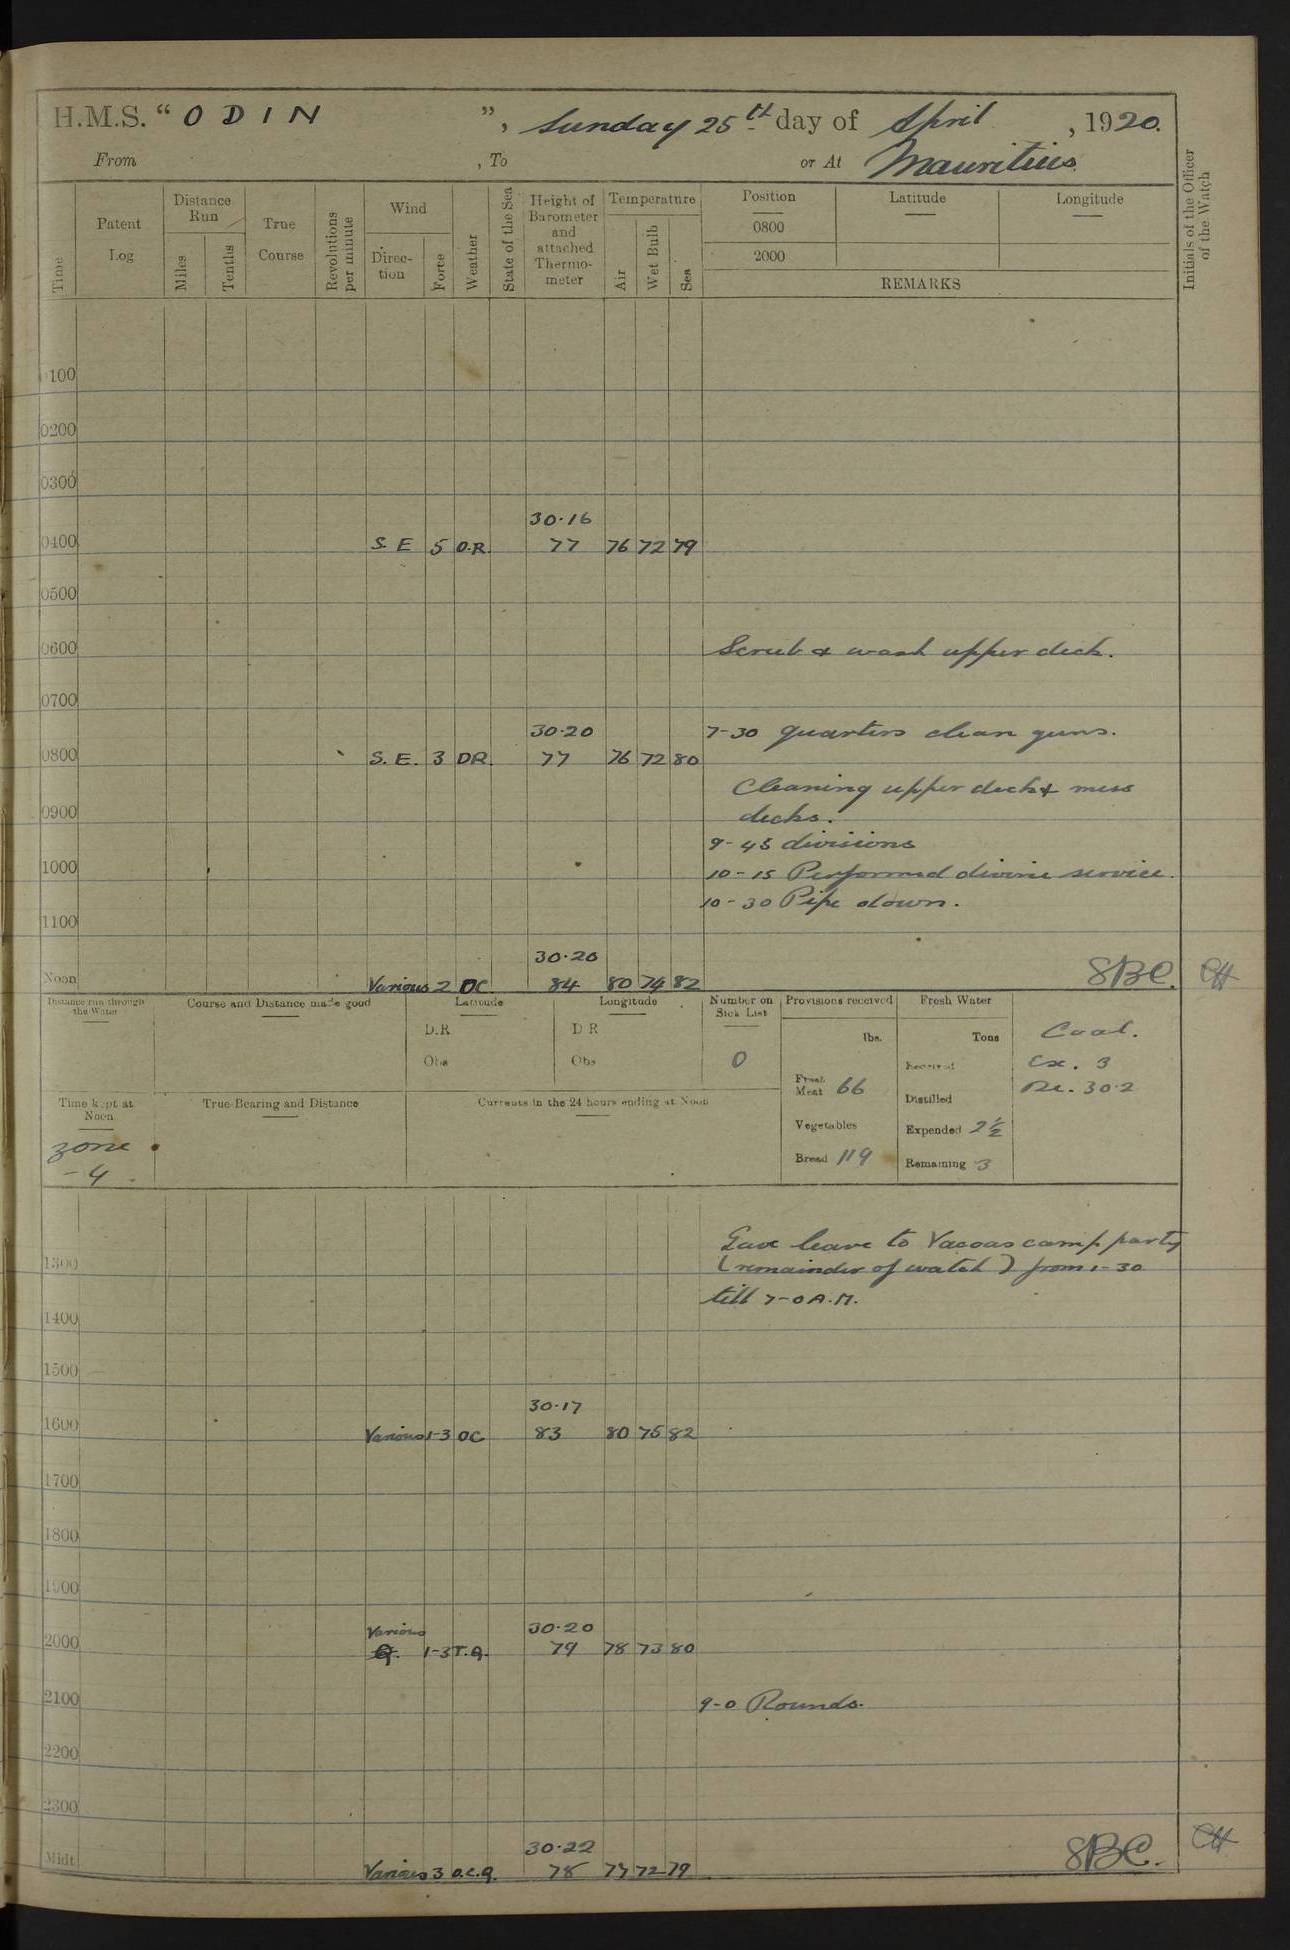 H.M.S. “ODIN”, Sunday 25th day of April, 1920.
From , To or At Mauritius
Time
Patent Log
Distance Run
Miles
Tenths
True Course
Revolutions per minute
Wind
Direction
Force
Weather
State of the Sea
Height of Barometer and attached Thermometer
Temperature
Air
Wet Bulb
Sea
Position
0800
2000
Latitude
Longitude
REMARKS
Initials of the Officer of the Watch
0100
0200
0300
30.16
0400 S. E 5 O.R. 77 76 72 79
0500
0600 Scrub & wash upper deck.
0700
30.20 7-30 Quarters clean guns.
0800 S. E. 3 OR. 77 76 72 80
Cleaning upper deck & mess
0900 decks.
9-45 divisions
1000 10-15 Performed divine service.
10-30 Pipe down.
1100
30.20
Noon Various 2 OC 84 80 74 82 SBC.
Distance run through the Water
Course and Distance made good
Latitude
D.R
Obs
Longitude
D R
Obs
Number on Sick List
0
Provisions received
lbs.
Fresh Meat 66
Vegetables
Bread 119
Fresh Water
Tons
Received
Distilled
Expended 2½
Remaining 3
Coal.
Ex. 3
Re. 30.2
Time kept at Noon
zone
-4
True Bearing and Distance
Currents in the 24 hours ending at Noon
Gave leave to Vacoas camp party
1300 (remainder of watch) from 1-30
till 7-0 A.M.
1400
1500
30.17
1600 Various 1-3 OC 83 80 75 82
1700
1800
1900
Various 30.20
2000 1-3 79 78 73 80
2100 9-0 Rounds.
2200
2300
30.22
Midt Various 3 O.C.Q. 78 77 72 79 SBC.